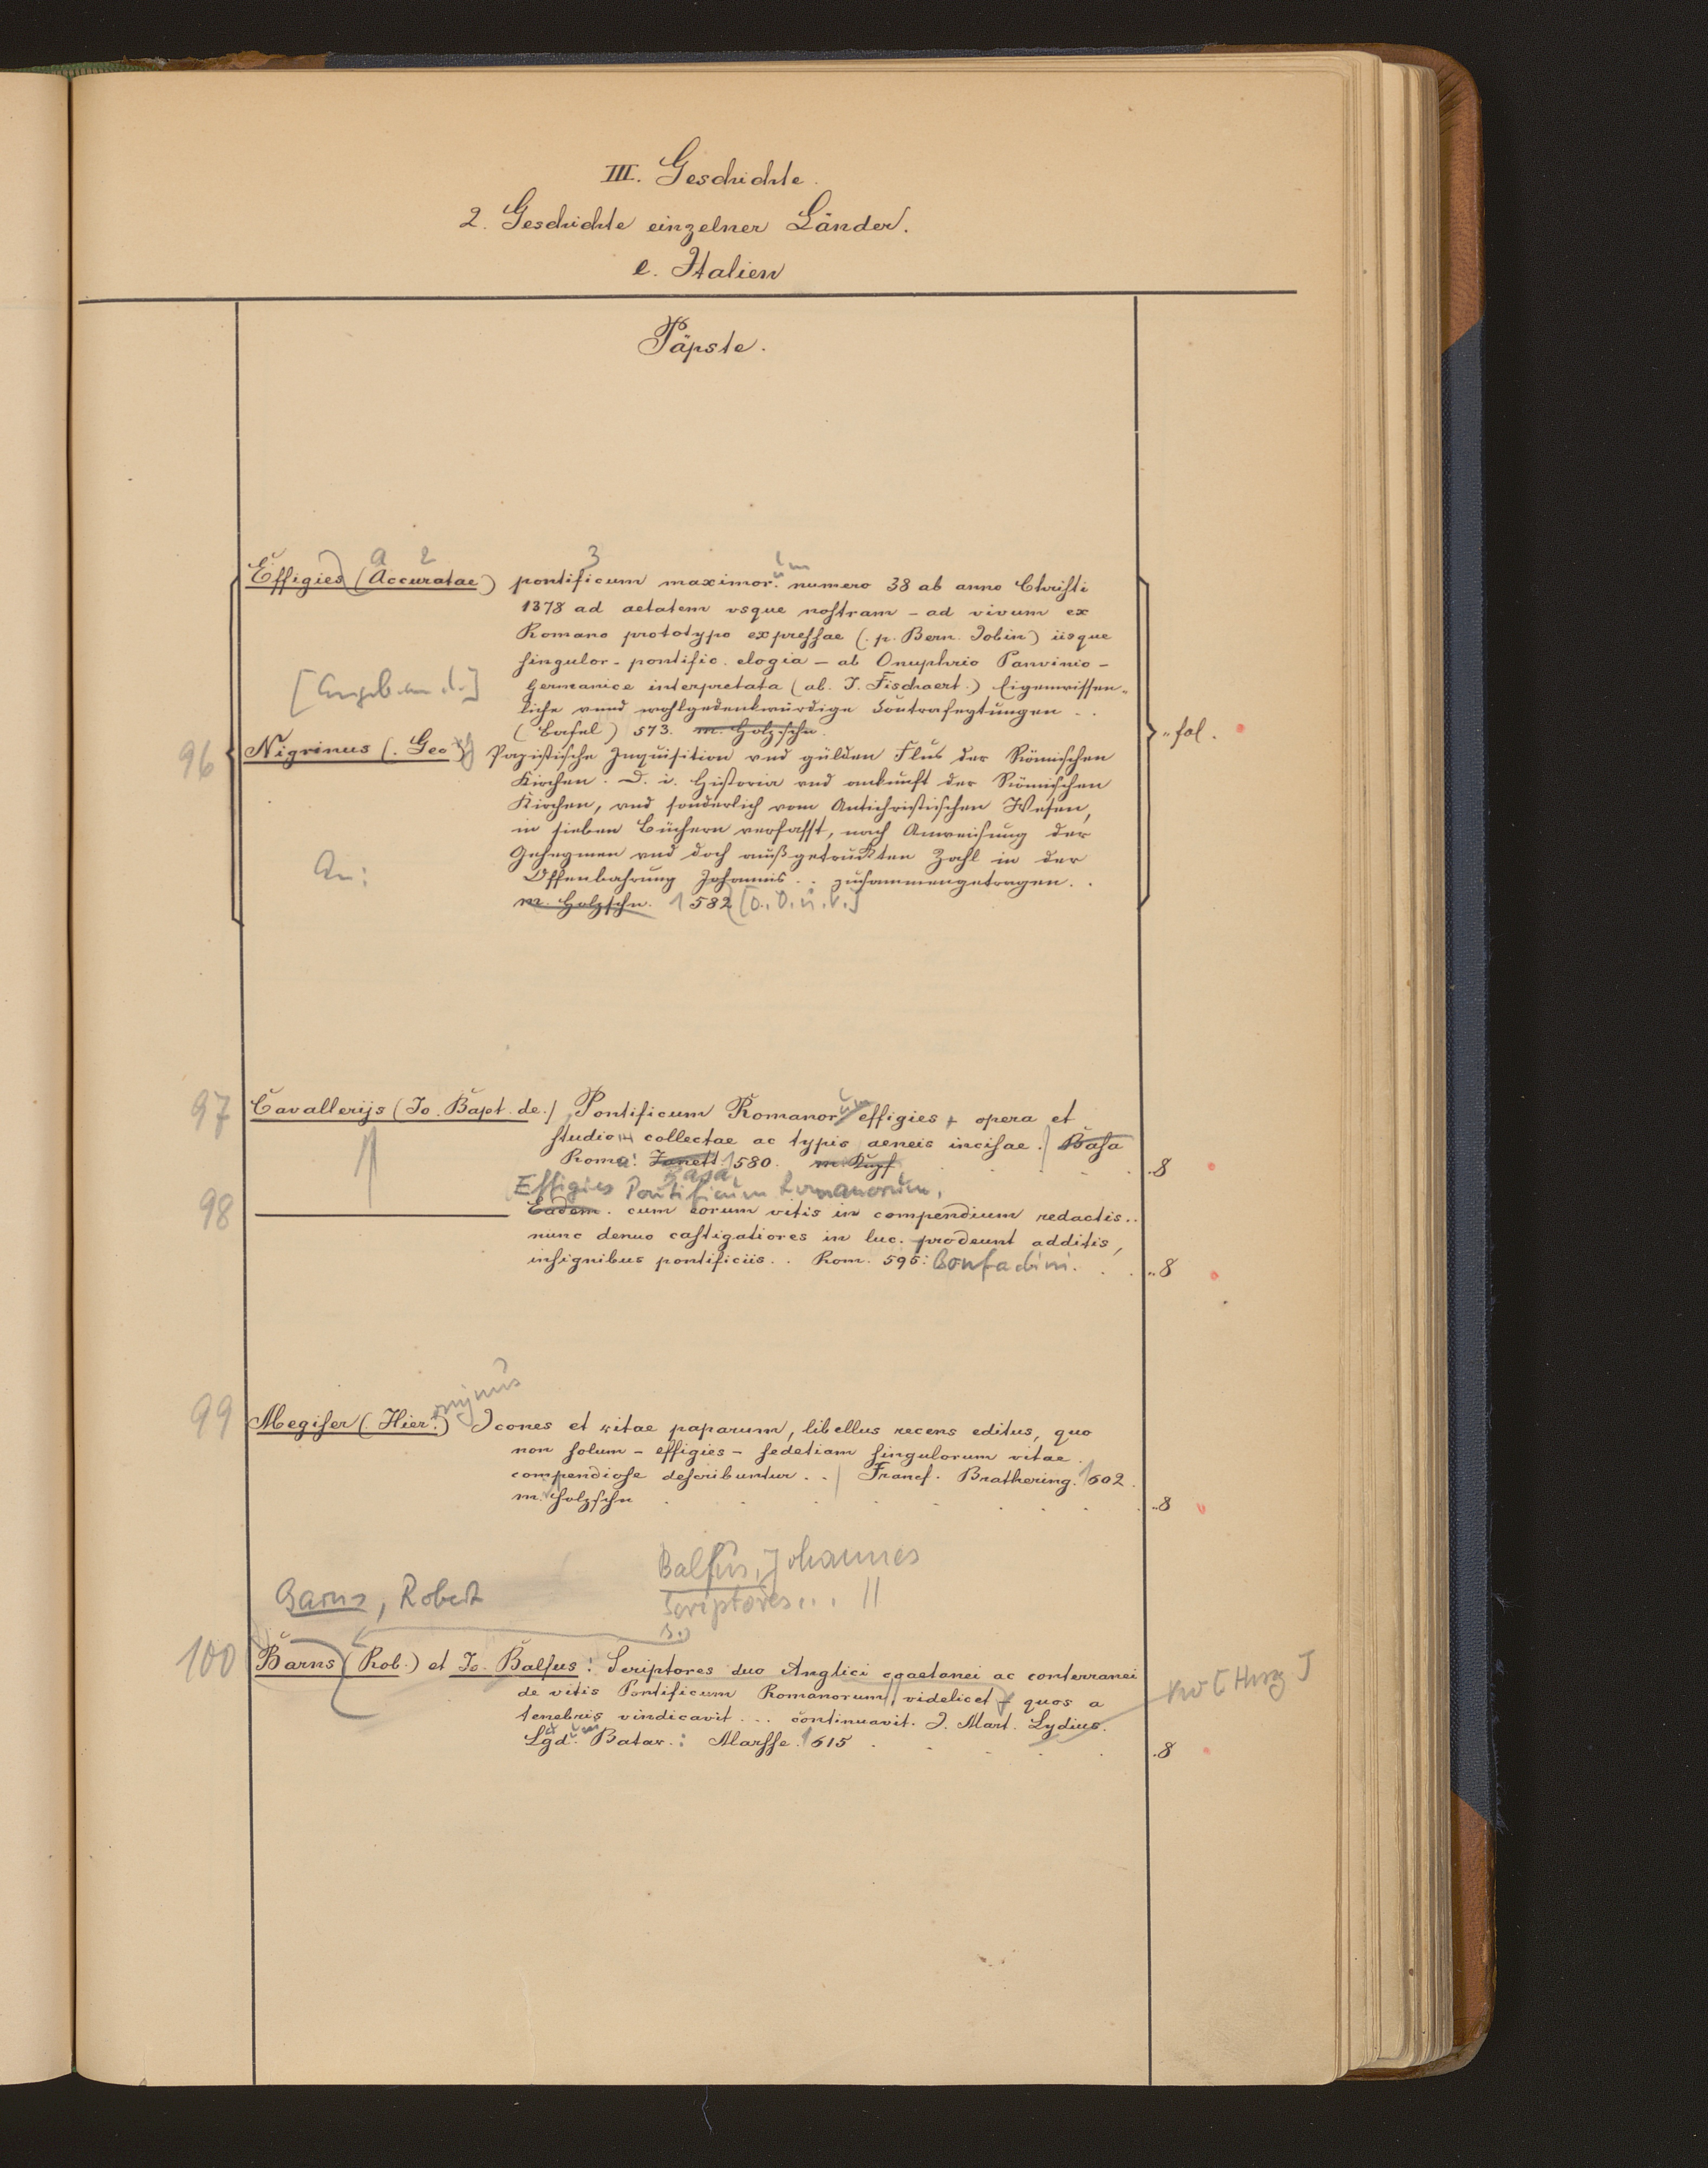 III. Geschichte.
2. Geschichte einzelner Länder.
e. Italien
Päpste.
a 2 3 um
Effigies (Accuratae) pontificum maximor. numero 38 ab anno Christi
1378 ad aetatem vsque nostram – ad vivum ex
Romano prototypo expressae (. p. Bern. Jobin) iisque
singulor. pontific. elogia – ab Onuphrio Panvinio –
[Angeb. an d.] germanice interpretata (ab. J. Fischaert.) Eigenwissen-
liche vnnd wohlgedenkwürdige Contrafegtungen ..
(Basel) 573. m. Holzschn. „ fol.
96 Nigrinus (. Geo.) Papistische Inquisition vnd gülden Flus der Römischen
Kirchen. D. i. Historia vnd ankunft der Römischen
Kirchen, vnd sonderlich vom Antichristischen Wesen,
in sieben Büchern verfasst, nach Anweisung der
An: Gehegmen vnd doch außgetruckten Zahl in der
Offenbahrung Johannis .. zusammengetragen. .
m. Holzschn. 1582 [o. O. u. V.]
97 Cavallerijs (Jo. Bapt. de.) Pontificum Romanorum effigies opera et
studio collectae ac typis aeneis incisae. Basa
Roma: Zanett. 1580. m. Kupf. .8
Basa,
Effigies Pontificum Romanorum,
98 Eadem. cum eorum vitis in compendium redactis..
nunc denuo castigatiores in luc. prodeunt additis,
insignibus pontificiis. . Rom. 595: Bonfadini. . . „8
onymus
99 Megiser (. Hier.) Icones et vitae paparum, libellus recens editus, quo
non solum – effigies – sedetiam singulorum vitae.
compendiose describuntur. . Francf. Brathering. 1602.
m. Holzschn . . . . . . . „8
Balsus, Johannes
Barns, Robert Scriptores... ||
s.
100 Barns (Rob.) et Jo. Balsus: Scriptores duo Anglici coaetanei ac conterranei
de vitis Pontificum Romanorum, videlicet quos a
tenebris vindicavit ... continuavit. J. Mart. Lydius.
um
Lgd. Batav.: Marsse. 1615 . . . . .8